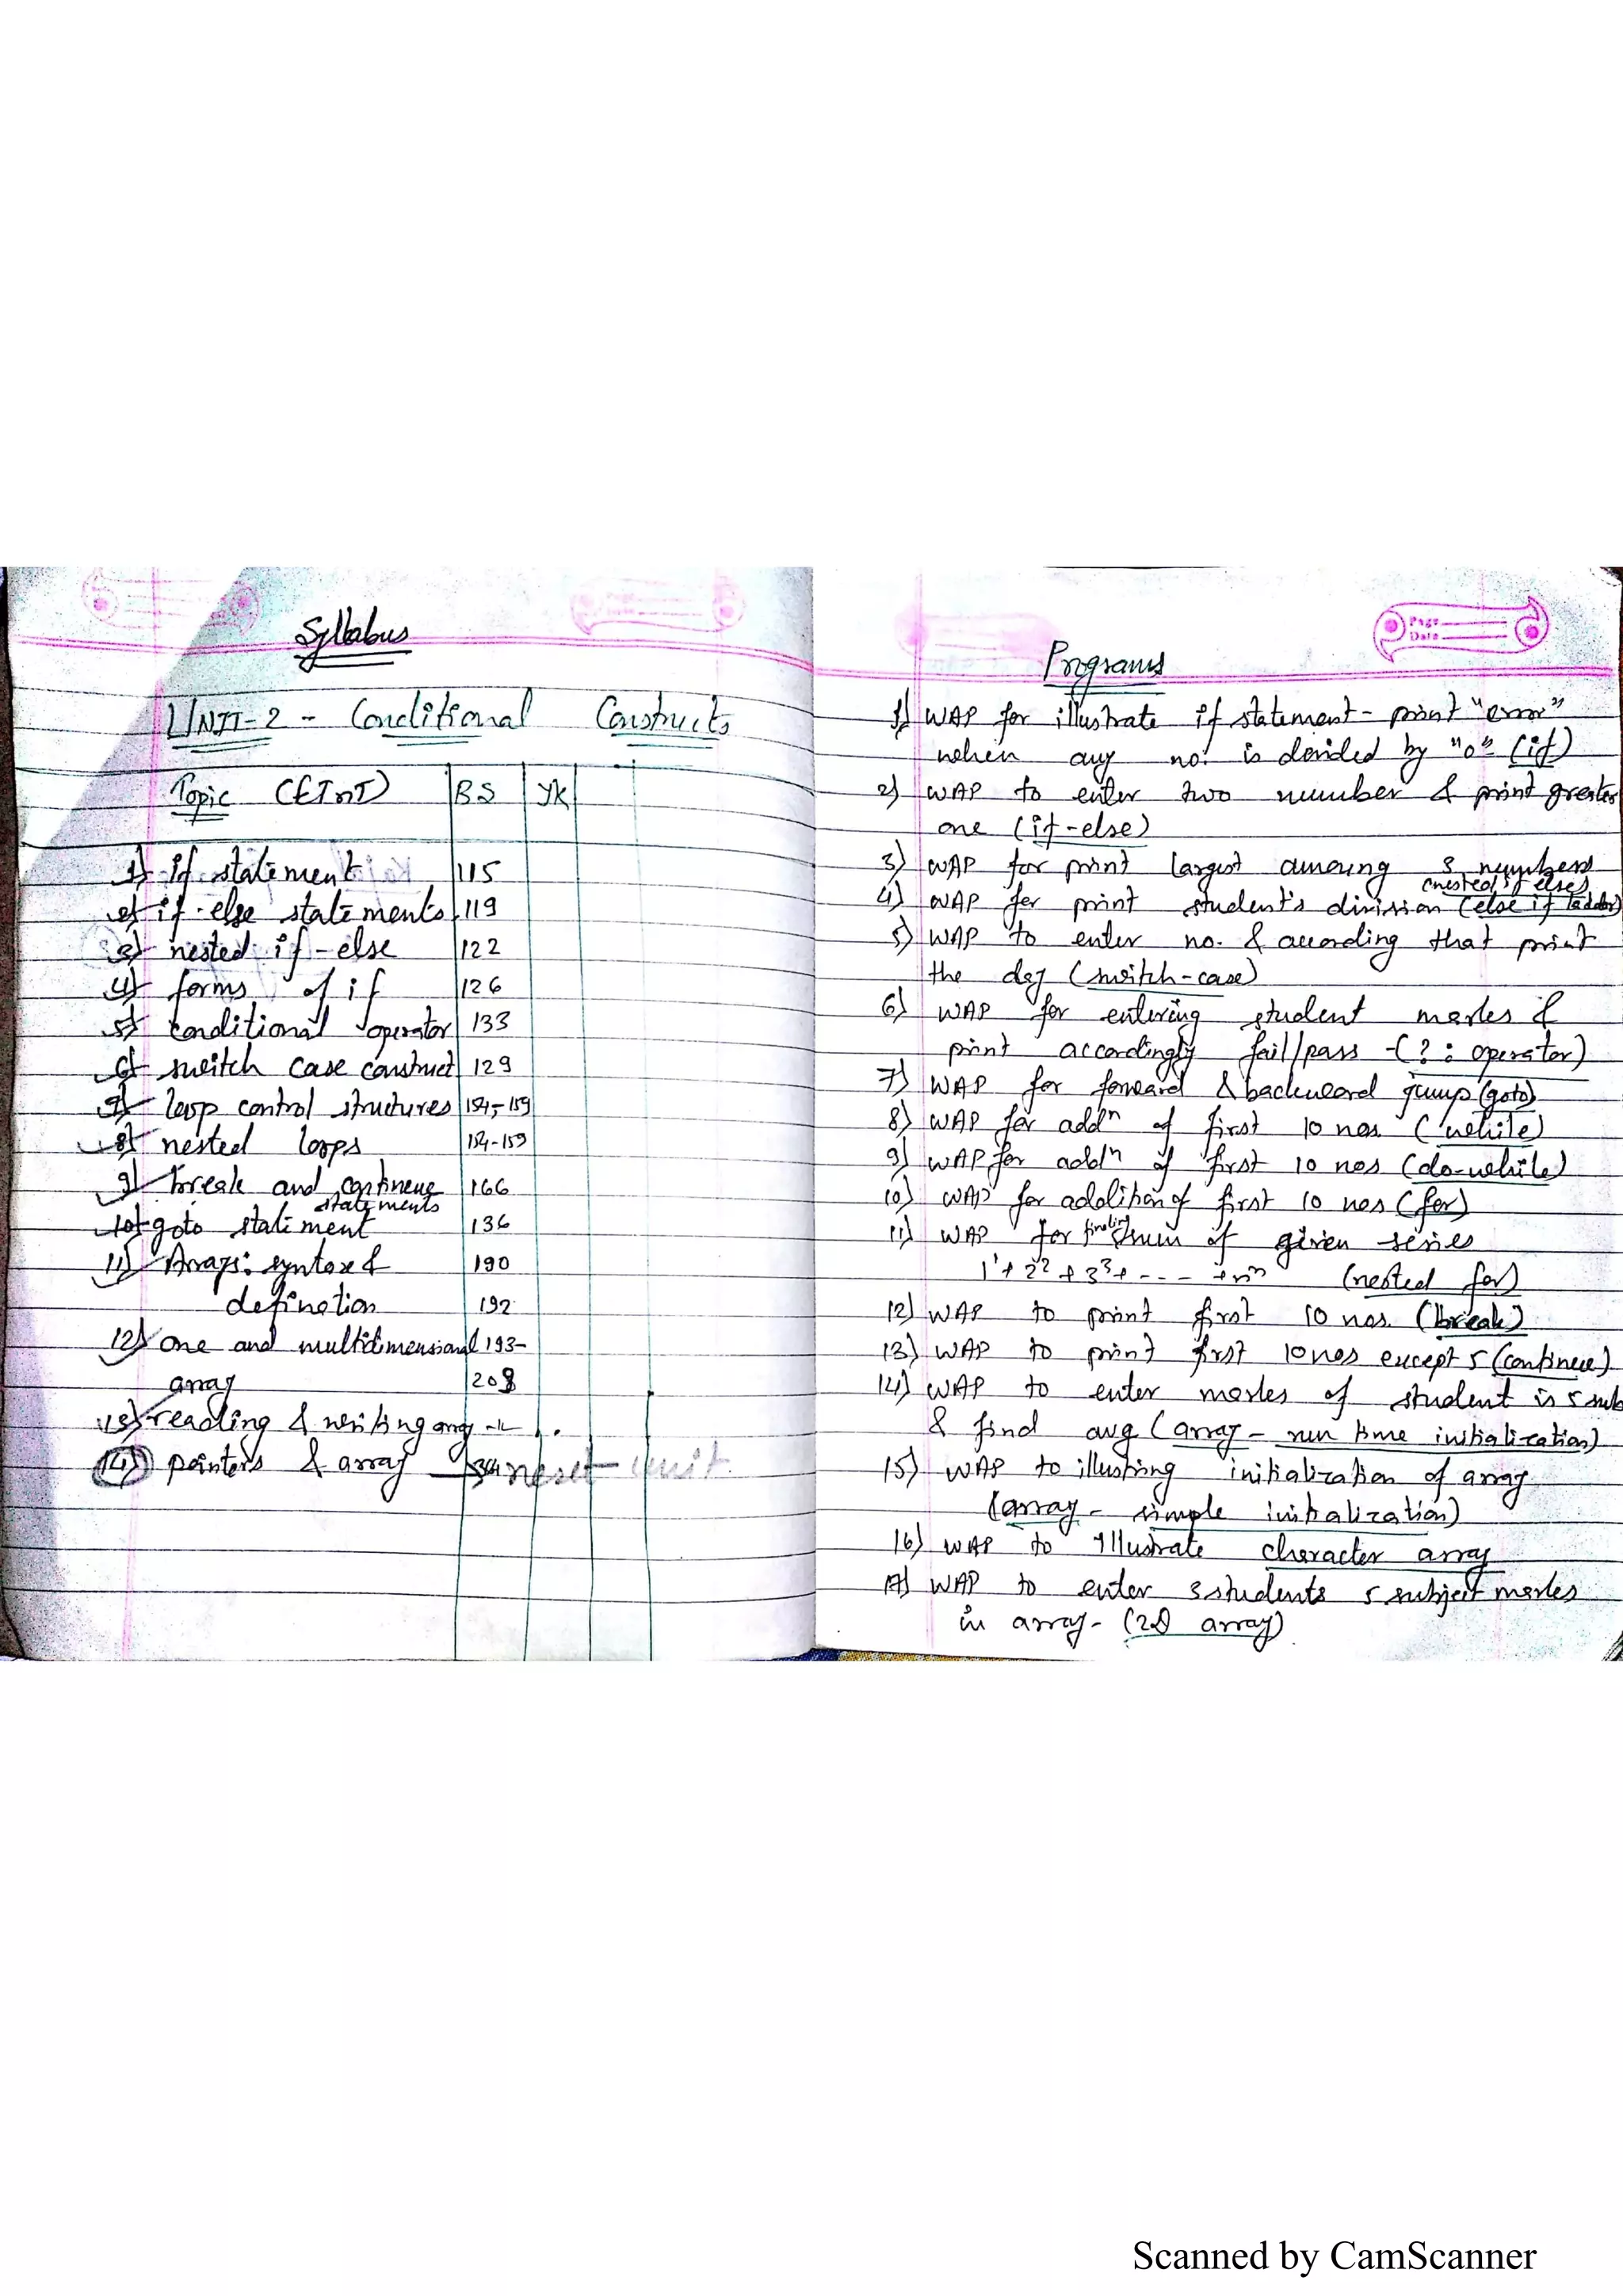 Syllabus
UNIT-2 - Conditional Constructs
Topic BS YK
1) if statement 115
2) if-else statements 119
3) nested if-else 122
4) forms of if 126
5) conditional operator 133
6) switch case construct 129
7) loop control structures 154-159
8) nested loops 154-159
9) break and continue 166
statements
10) goto statement 136
11) Arrays: syntax & 190
defination 192
12) one and multidimensional 193-
array 208
13) reading & writing array -"-
14) pointers & array next unit
Page
Date
Programs
1) WAP for illustrate if statement - print "error"
when any no. is devided by "0" (if)
2) WAP to enter two number & print greater
one (if-else)
3) WAP for print largest amoung 3 numbers
(nested if else)
4) WAP for print student's division (else if ladder)
5) WAP to enter no. & according that print
the day (switch-case)
6) WAP for entering student marks &
print accordingly fail/pass - (? : operator)
7) WAP for forward & backward jump (goto)
8) WAP for addn of first 10 nos (while)
9) WAP for addn of first 10 nos (do-while)
10) WAP for addition of first 10 nos (for)
11) WAP for finding sum of given series
1¹ + 2² + 3³ + --- + nⁿ (nested for)
12) WAP to print first 10 nos. (break)
13) WAP to print first 10 nos except 5 (continue)
14) WAP to enter marks of student is 5 sub
& find avg (array - run time initialization)
15) WAP to illustring initialization of array
(array - simple initialization)
16) WAP to Illustrate character array
17) WAP to enter 3 students 5 subject marks
in array - (2D array)
Scanned by CamScanner